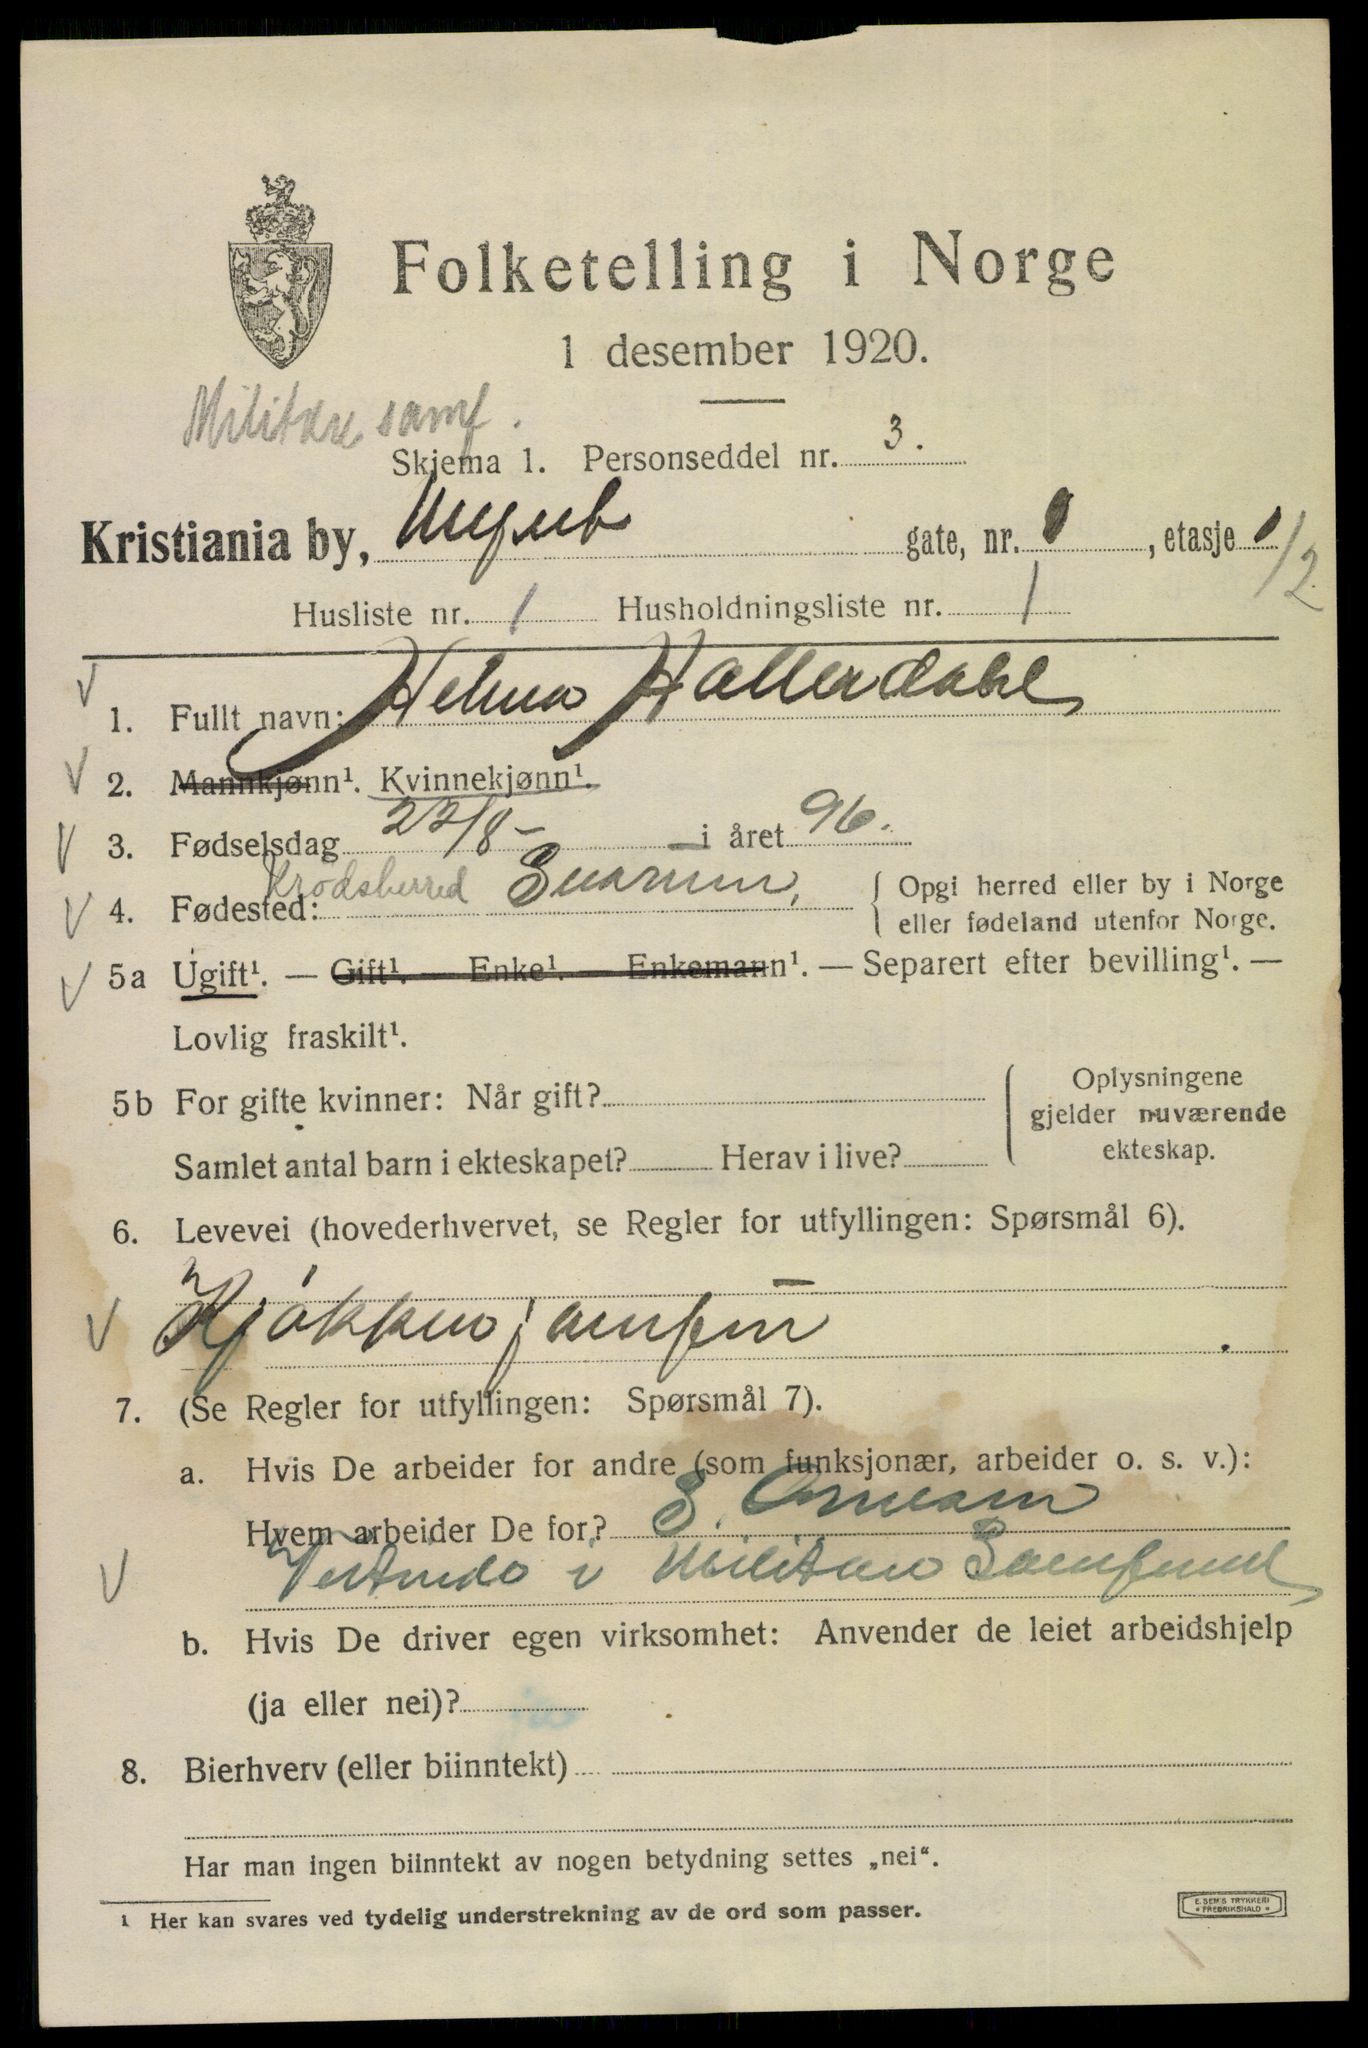 Folketelling i Norge
1 desember 1920.
Militære samf.
Skjema 1. Personseddel nr. 3.
Kristiania by, gate, nr. , etasje
1/2
Husliste nr. 1 Husholdningsliste nr. 1
1. Fullt navn: Helma Hallerdahl
2. Mannkjønn¹. Kvinnekjønn¹.
3. Fødselsdag 22/8- i året 96.
4. Fødested: Krødsherred Snarum,
{ Opgi herred eller by i Norge
eller fødeland utenfor Norge.
5a Ugift¹. — Gift¹. — Enke¹. — Enkemann¹. — Separert efter bevilling¹. —
Lovlig fraskilt¹.
5b For gifte kvinner: Når gift?
Samlet antal barn i ekteskapet? Herav i live?
{ Oplysningene
gjelder nuværende
ekteskap.
6. Levevei (hovederhvervet, se Regler for utfyllingen: Spørsmål 6).
Kjøkkenjomfru
7. (Se Regler for utfyllingen: Spørsmål 7).
a. Hvis De arbeider for andre (som funksjonær, arbeider o. s. v.):
Hvem arbeider De for? S.
i Militære Samfund
b. Hvis De driver egen virksomhet: Anvender de leiet arbeidshjelp
(ja eller nei)?
8. Bierhverv (eller biinntekt)
Har man ingen biinntekt av nogen betydning settes „nei".
¹ Her kan svares ved tydelig understrekning av de ord som passer.
E. SEM'S TRYKKERI
* FREDRIKSHALD *